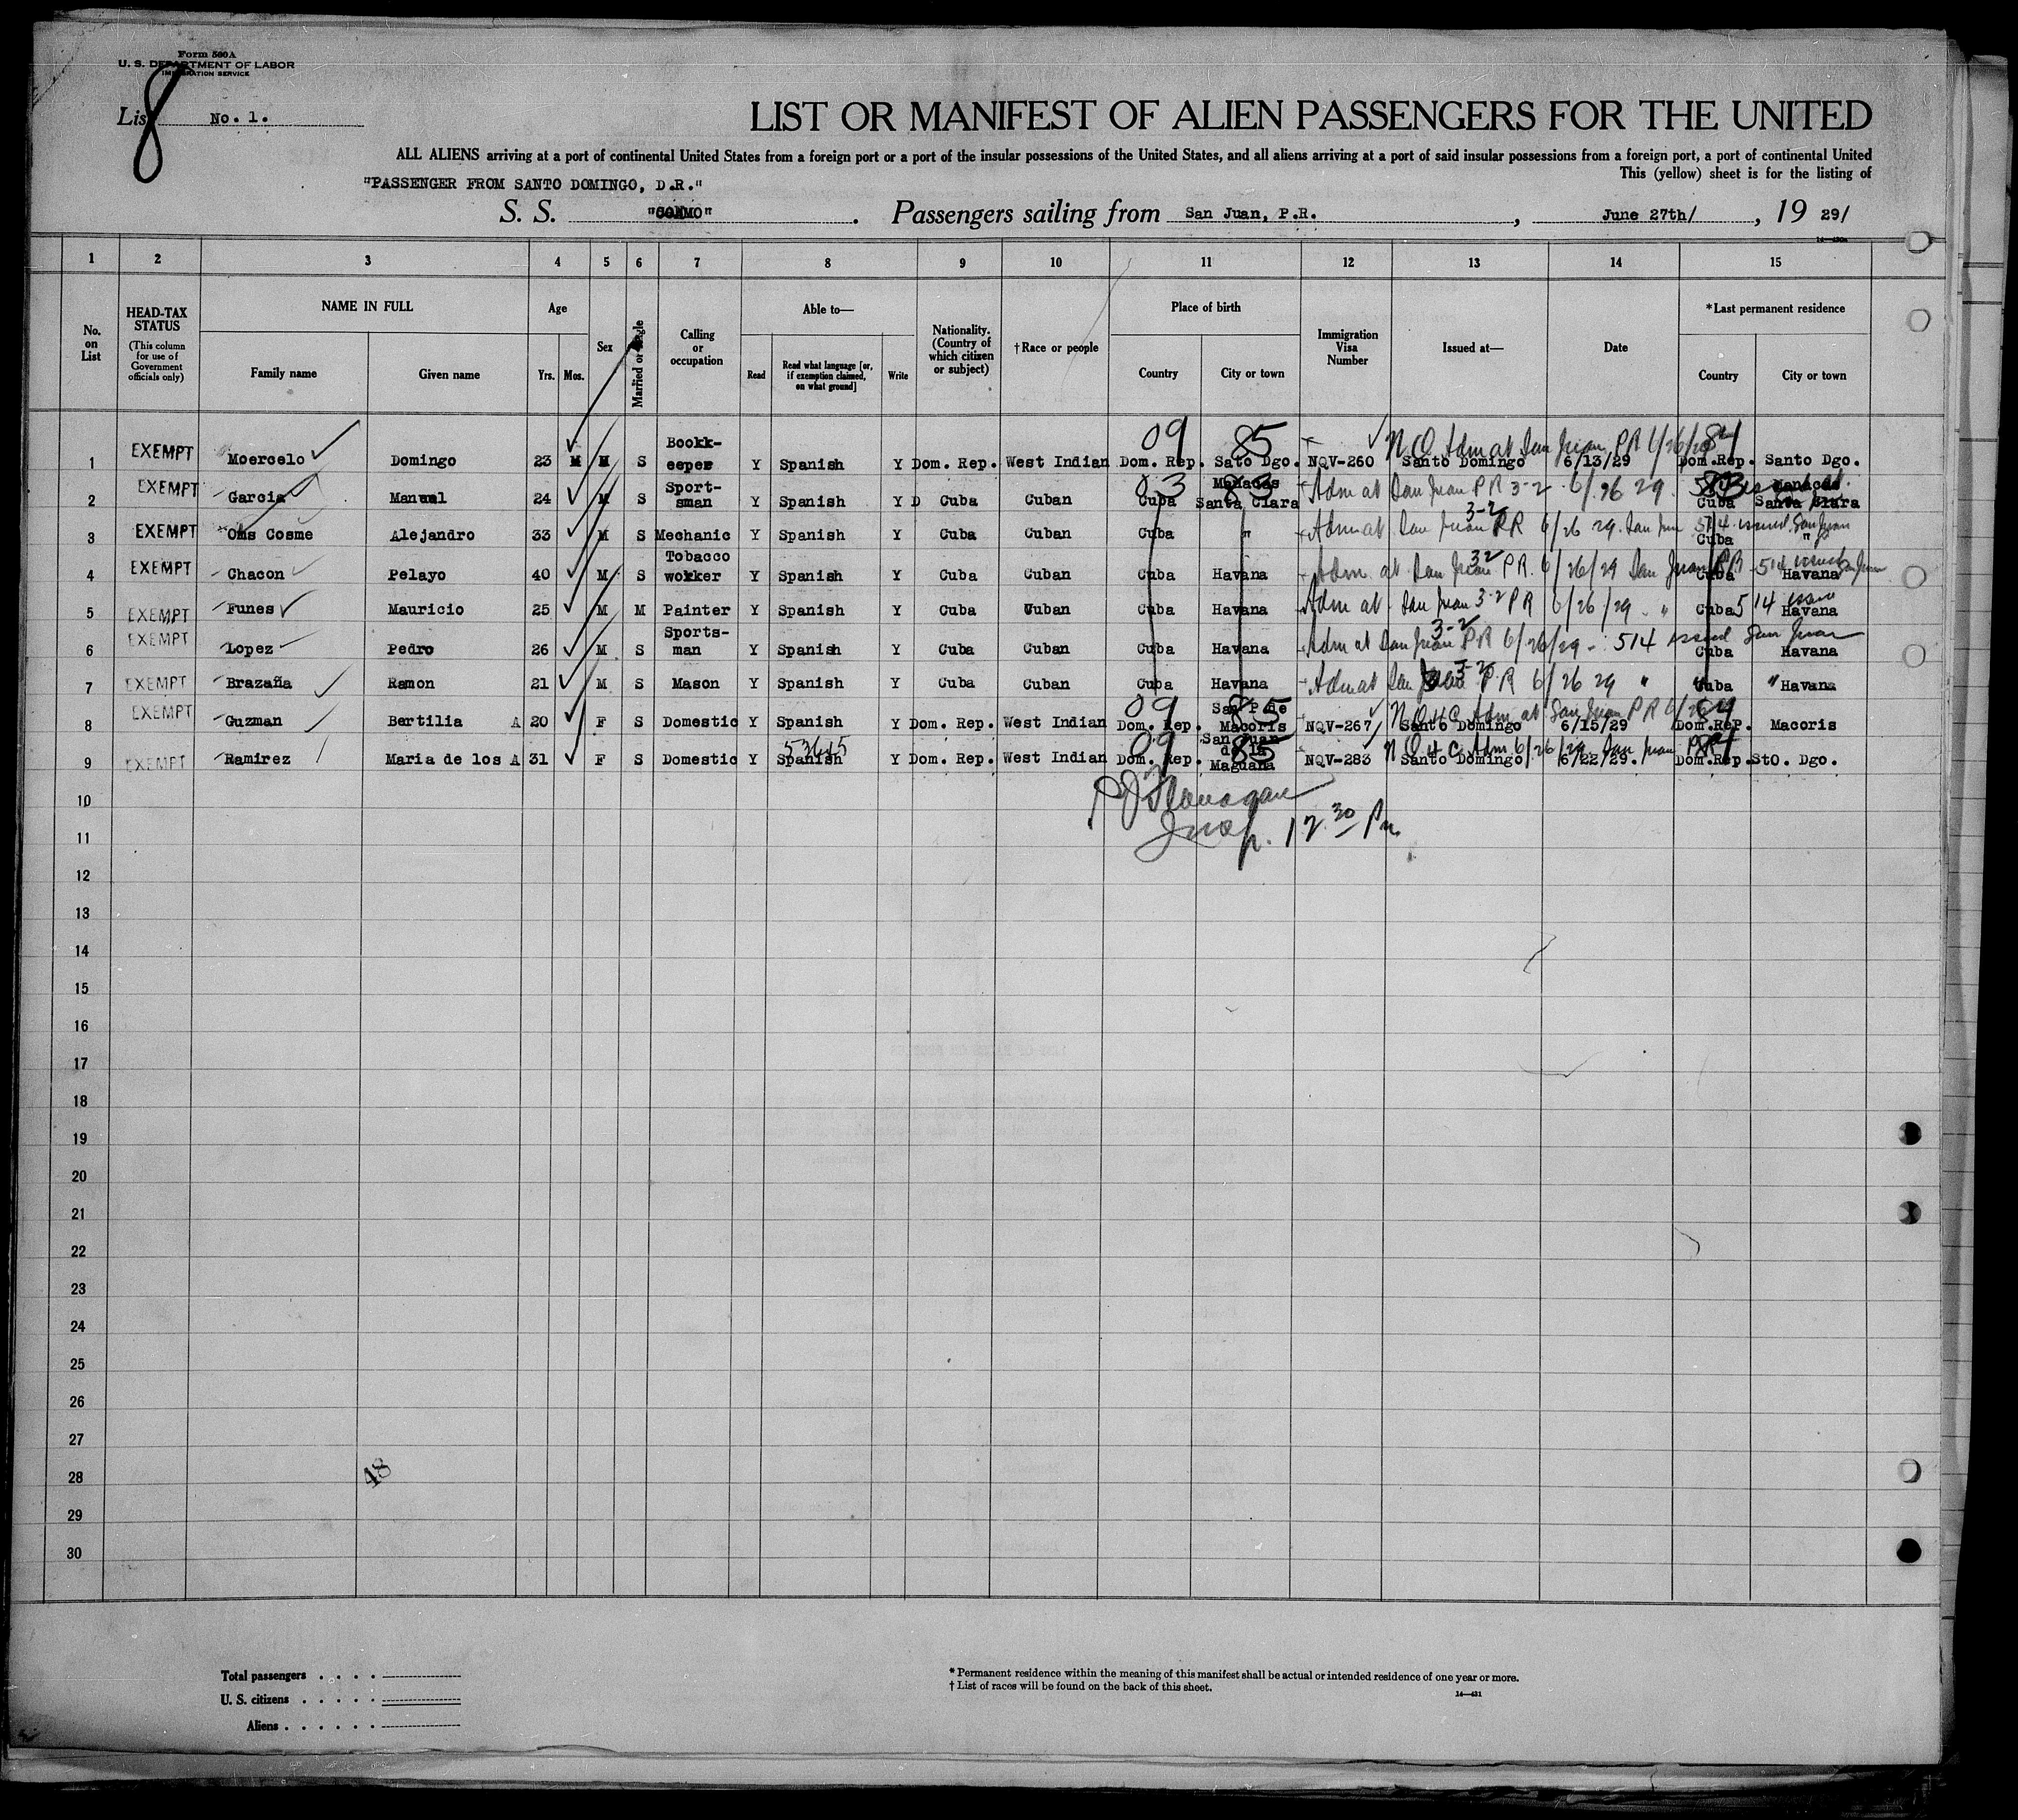 Form 500A
U. S. DEPARTMENT OF LABOR
IMMIGRATION SERVICE
8
List No. 1.
LIST OR MANIFEST OF ALIEN PASSENGERS FOR THE UNITED
ALL ALIENS arriving at a port of continental United States from a foreign port or a port of the insular possessions of the United States, and all aliens arriving at a port of said insular possessions from a foreign port, a port of continental United
This (yellow) sheet is for the listing of
"PASSENGER FROM SANTO DOMINGO, D.R."
S. S. "COAMO". Passengers sailing from San Juan, P.R., June 27th/, 19 29/
1 2 3 4 5 6 7 8 9 10 11 12 13 14 15
No. on List
HEAD-TAX STATUS (This column for use of Government officials only)
NAME IN FULL Family name Given name
Age Yrs. Mos.
Sex
Married or Single
Calling or occupation
Able to— Read Read what language [or, if exemption claimed, on what ground] Write
Nationality. (Country of which citizen or subject)
† Race or people
Place of birth Country City or town
Immigration Visa Number
Issued at—
Date
*Last permanent residence Country City or town
1 EXEMPT Moercelo Domingo 23 M M S Bookk-eeper Y Spanish Y Dom. Rep. West Indian Dom. Rep. Sato Dgo. NQV-260 Santo Domingo 6/13/29 Dom.Rep. Santo Dgo.
09 85 N Q Adm at San Juan PR 6/26/29 84
2 EXEMPT Garcia Manuel 24 M S Sport-sman Y Spanish Y D Cuba Cuban Cuba Manacas Santa Clara Cuba Manacas Santa Clara
03 83 Adm at San Juan PR 3-2 6/26 29 83
3 EXEMPT Oms Cosme Alejandro 33 M S Mechanic Y Spanish Y Cuba Cuban Cuba " Cuba "
Adm at San Juan PR 3-2 6/26 29. San Juan 514 issued San Juan
4 EXEMPT Chacon Pelayo 40 M S Tobacco wokker Y Spanish Y Cuba Cuban Cuba Havana Cuba Havana
Adm at San Juan 32 PR. 6/26/29 San Juan PR 514 issued San Juan
5 EXEMPT Funes Mauricio 25 M M Painter Y Spanish Y Cuba Cuban Cuba Havana Cuba Havana
Adm at San Juan 3-2 PR 6/26/29 " 514 issue
6 EXEMPT Lopez Pedro 26 M S Sports-man Y Spanish Y Cuba Cuban Cuba Havana Cuba Havana
Adm at San Juan 3-2 PR 6/26/29 - 514 issued San Juan
7 EXEMPT Brazaña Ramon 21 M S Mason Y Spanish Y Cuba Cuban Cuba Havana Cuba Havana
Adm at San Juan 3-2 P.R 6/26 29 " " "
8 EXEMPT Guzman Bertilia A 20 F S Domestic Y Spanish Y Dom. Rep. West Indian Dom. Rep. San P de Macoris NQV-267 Santo Domingo 6/15/29 Dom.ReP. Macoris
09 85 N Q 4 C Adm at San Juan PR 84
9 EXEMPT Ramirez Maria de los A 31 F S Domestic Y Spanish Y Dom. Rep. West Indian Dom. Rep. San Juan de la Maguana NQV-283 Santo Domingo 6/22/29. Dom.Rep. StO. Dgo.
53645 09 85 N Q 4 C Adm 6/26/29 San Juan PR 84
Insp. 12 30 Pm.
10
11
12
13
14
15
16
17
18
19
20
21
22
23
24
25
26
27
28
29
30
48
Total passengers . . . .
U. S. citizens . . . . .
Aliens . . . . . .
* Permanent residence within the meaning of this manifest shall be actual or intended residence of one year or more.
† List of races will be found on the back of this sheet.
14—431